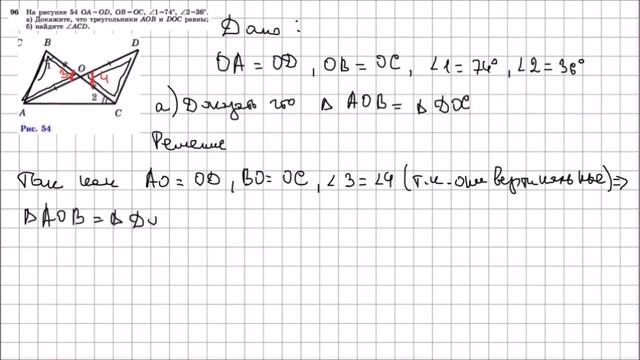 96 На рисунке 54 OA=OD, OB=OC, ∠1=74°, ∠2=36°.
а) Докажите, что треугольники AOB и DOC равны;
б) найдите ∠ACD.
Дано:
B D
OA = OD, OB = OC, ∠1 = 74°, ∠2 = 36°
1 3 O 4
2
а) что Δ AOB = Δ DOC
A C
Рис. 54
Решение
Так как AO = OD, BO = OC, ∠3 = ∠4 (т.к. они вертикальные) =>
Δ AOB = Δ D